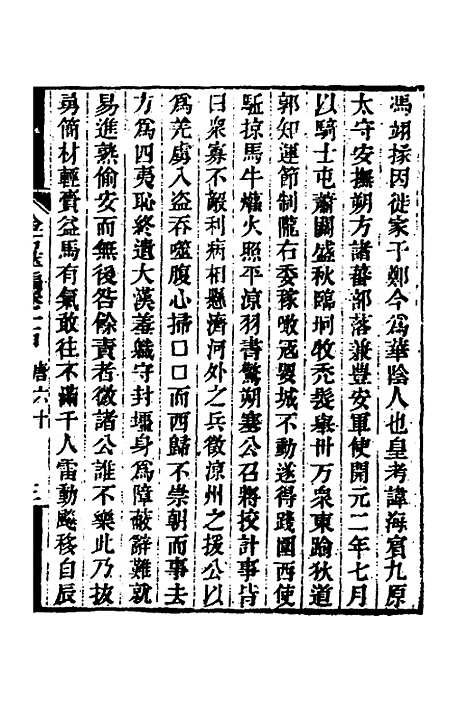 馮翊掾因徙家于鄭今爲華陰人也皇考諱海賓九原
太守安撫朔方諸蕃部落兼豐安軍使開元二年七月
以騎士屯蕭關盛秋臨坰牧禿髮率卅万衆東踰狄道
郭知運節制隴右委稼噉寇嬰城不動遂得踐圉西使
駈掠馬牛爟火照平涼羽書驚朔塞公召將挍計事皆
曰衆寡不敵利病相懸濟河外之兵徵涼州之援公以
爲羌虜入盜吞噬腹心掃口口而西歸不崇朝而事去
方爲四夷恥終遺大漢羞職守封壃身爲障蔽辭難就
易進孰偷安而無後咎餘責者徵諸公誰不樂此乃拔
勇簡材輕賫益馬有氣敢往不滿千人雷動飈移自辰
金石萃編卷一百 唐六十
三